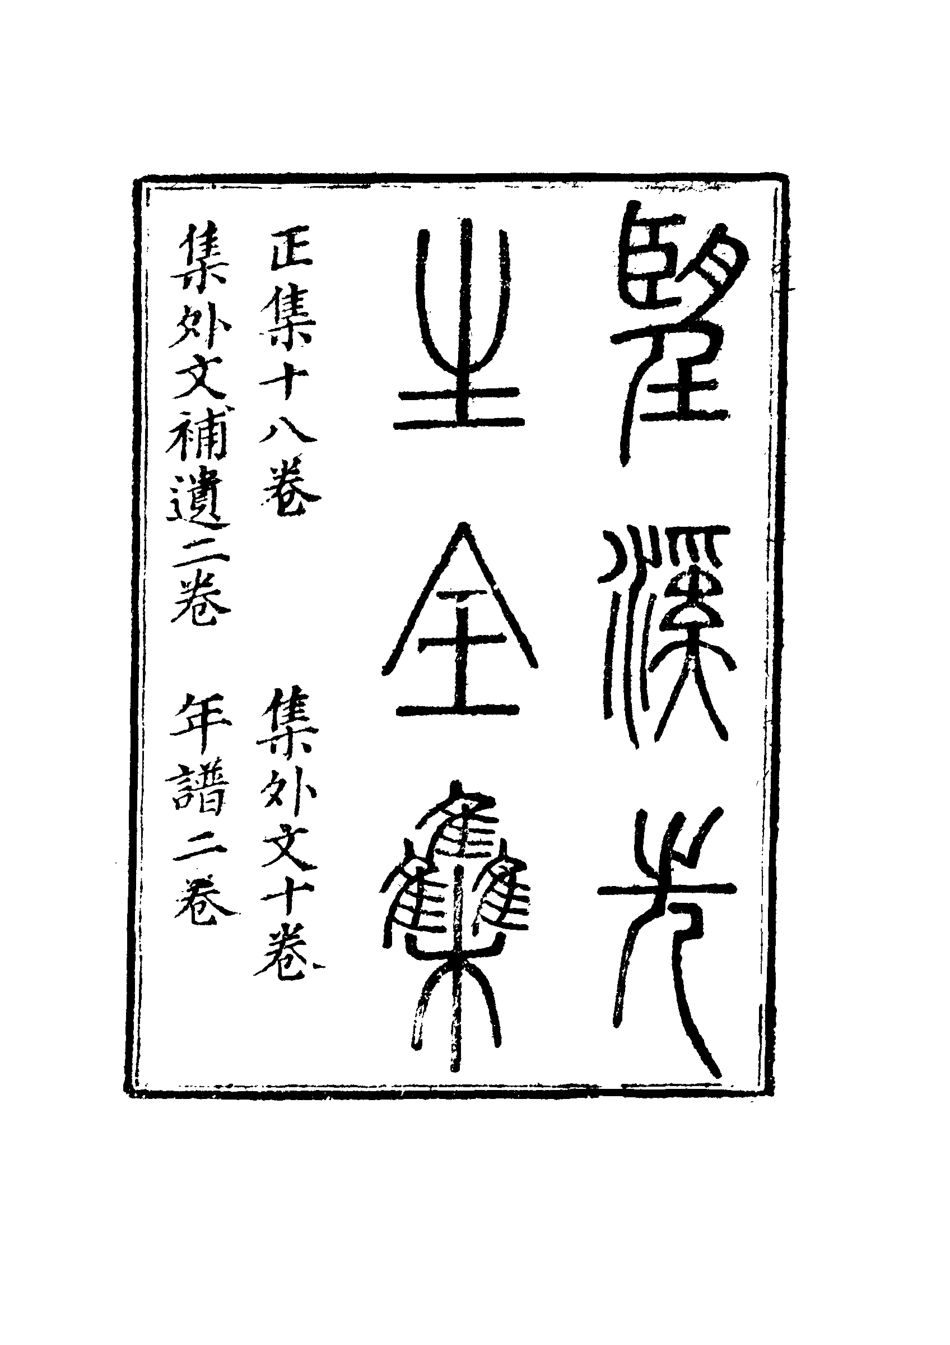 望溪先
生全集
正集十八卷　集外文十卷
集外文補遺二卷　年譜二卷